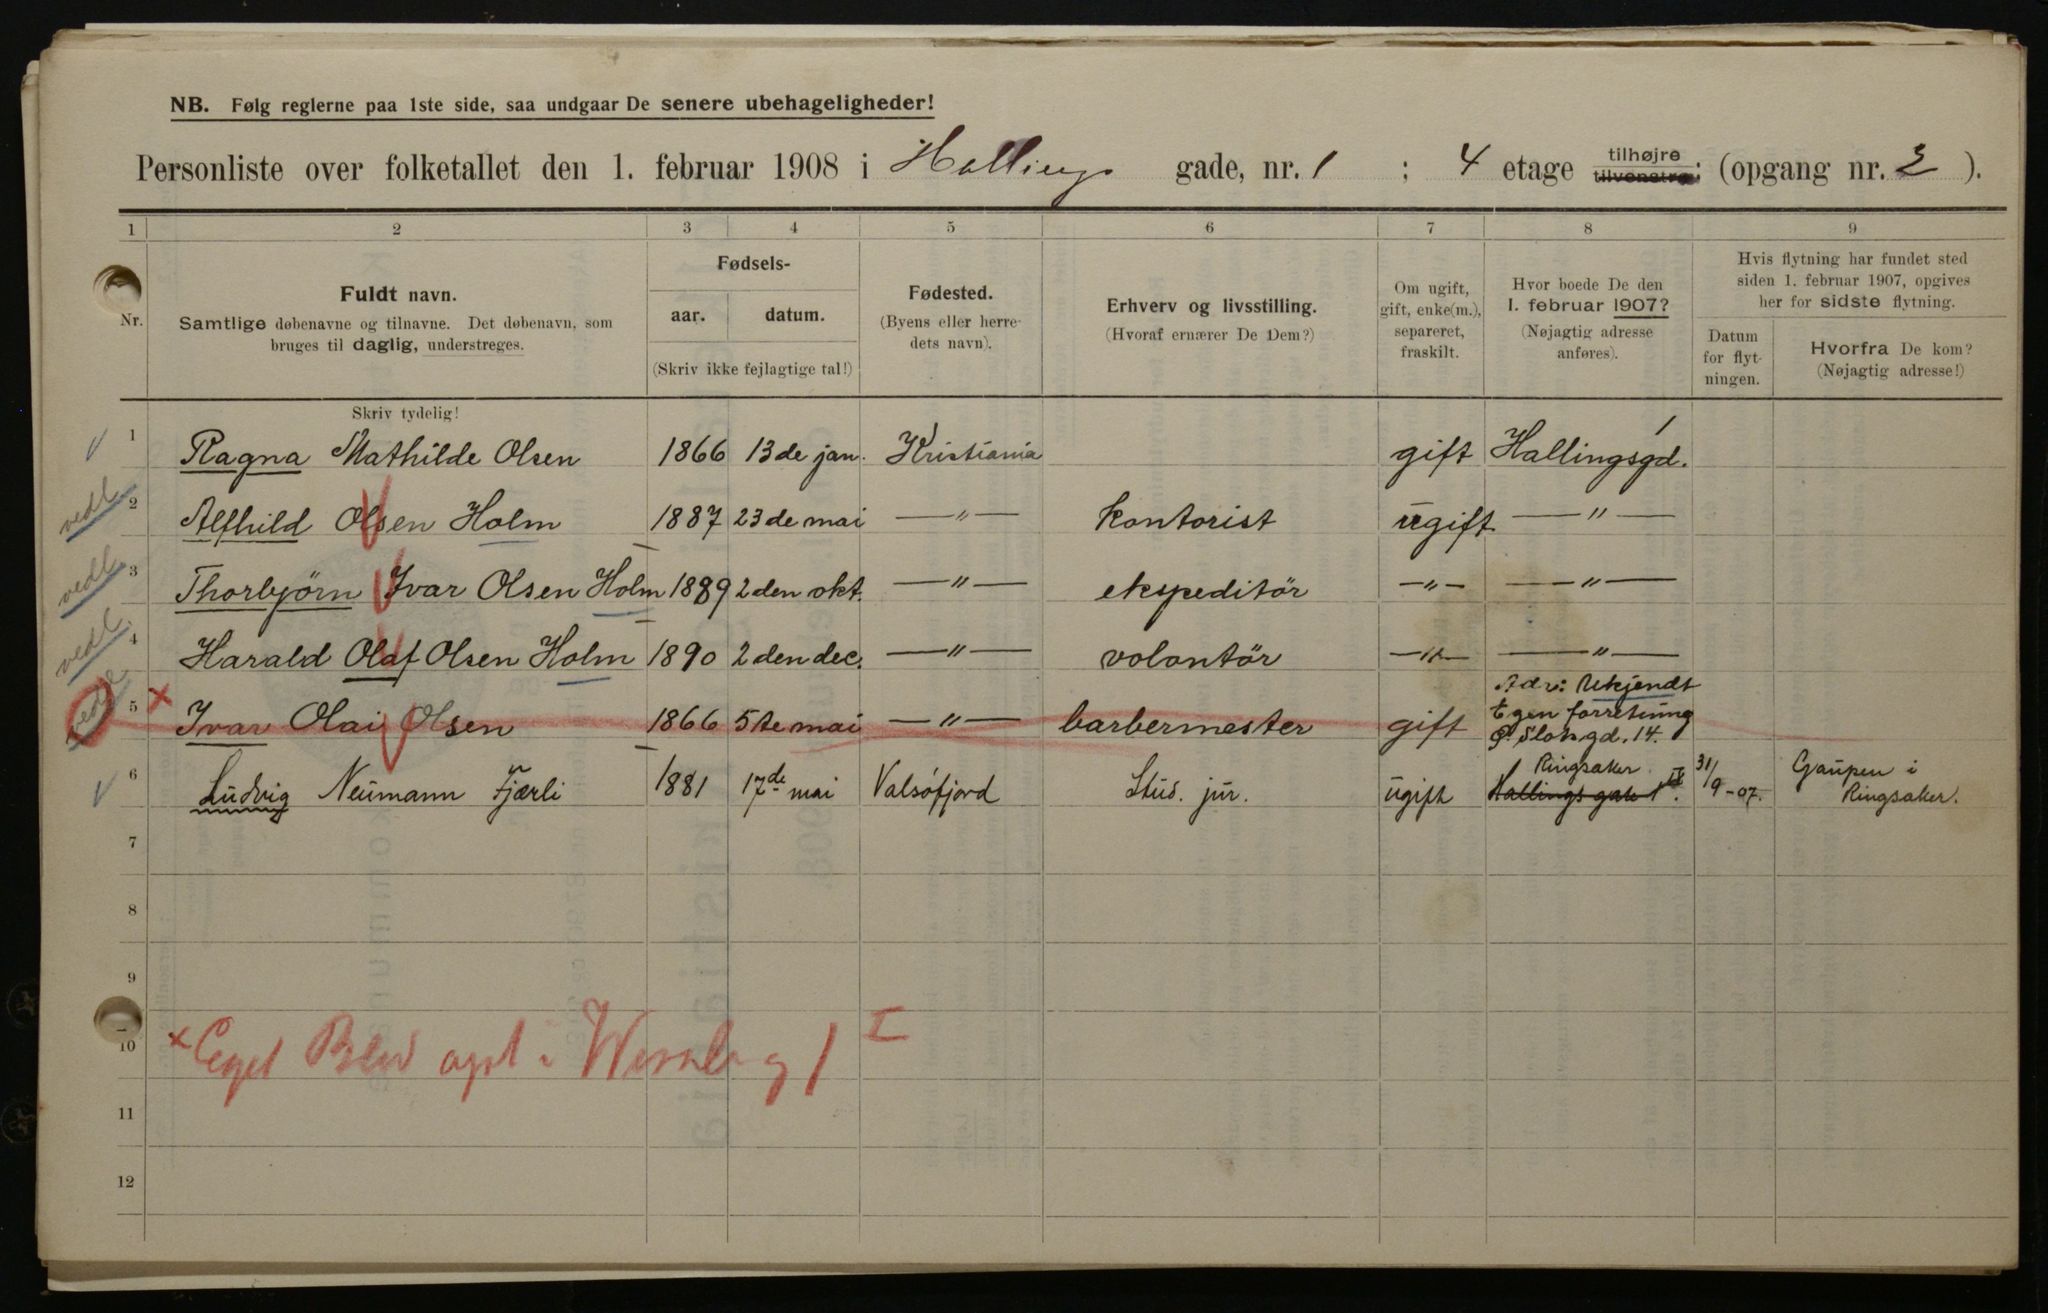 NB. Følg reglerne paa 1ste side, saa undgaar De senere ubehageligheder!
Personliste over folketallet den 1. februar 1908 i Hallings gade, nr. 1 ; 4 etage tilhøjre tilvenstre; (opgang nr. 2 ).
1 2 3 4 5 6 7 8 9
Nr.
Fuldt navn.
Samtlige døbenavne og tilnavne. Det døbenavn, som
bruges til daglig, understreges.
Skriv tydelig!
Fødsels-
aar. datum.
(Skriv ikke fejlagtige tal!)
Fødested.
(Byens eller herre-
dets navn).
Erhverv og livsstilling.
(Hvoraf ernærer De Dem?)
Om ugift,
gift, enke(m.),
separeret,
fraskilt.
Hvor boede De den
1. februar 1907?
(Nøjagtig adresse
anføres).
Hvis flytning har fundet sted
siden 1. februar 1907, opgives
her for sidste flytning.
Datum
for flyt-
ningen.
Hvorfra De kom?
(Nøjagtig adresse!)
1 Ragna Mathilde Olsen 1866 13de jan. Kristiania gift Hallingsgd. 1
vedl. 2 Alfhild Olsen Holm 1887 23de mai —"— kontorist ugift —"—
vedl. 3 Thorbjörn Ivar Olsen Holm 1889 2den okt. —"— ekspeditör —"— —"—
vedl. 4 Harald Olaf Olsen Holm 1890 2den dec. —"— volontör —"— —"—
vedl. × 5 Ivar Olai Olsen 1866 5te mai —"— barbermester gift Adr: Ukjendt
Egen forretning
Slotsgd. 14.
6 Ludvig Neumann Fjærli 1881 17de mai Valsöfjord Stud. jur. ugift Ringsaker
Hallings gate 1 IV. 31/9-07. Gaupen i
Ringsaker.
7
8
9
10
× Eget i 1 I
11
12